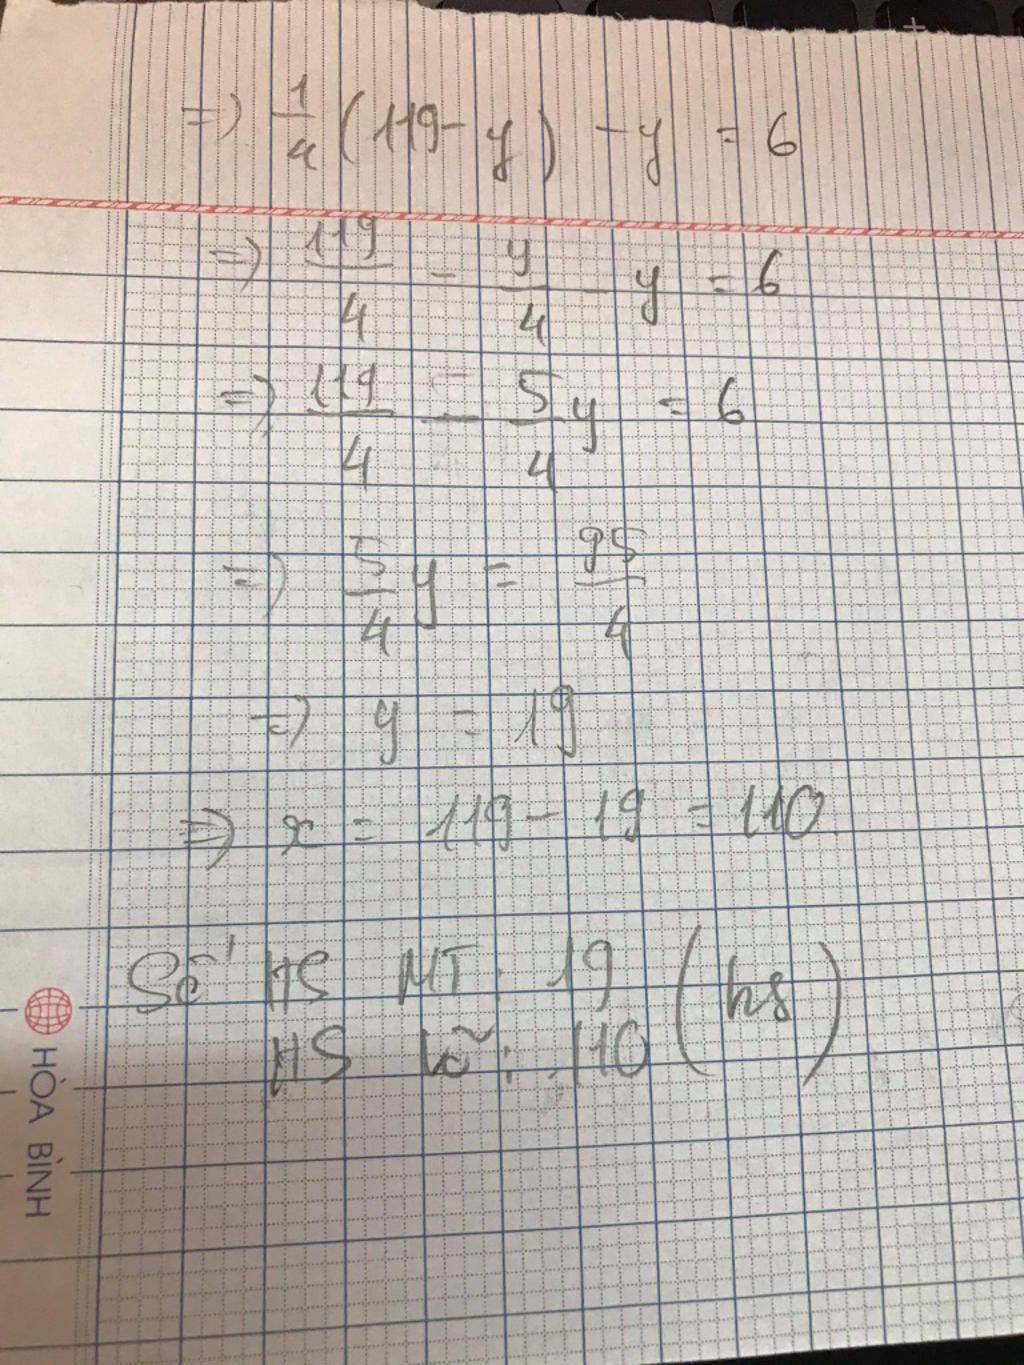 => 1/4 (119 - y) - y = 6
=> 119/4 - y/4 - y = 6
=> 119/4 - 5/4 y = 6
=> 5/4 y = 95/4
=> y = 19
=> x = 119 - 19 = 110
Số HS MT: 19 (hs)
HS võ: 110
HÒA BÌNH